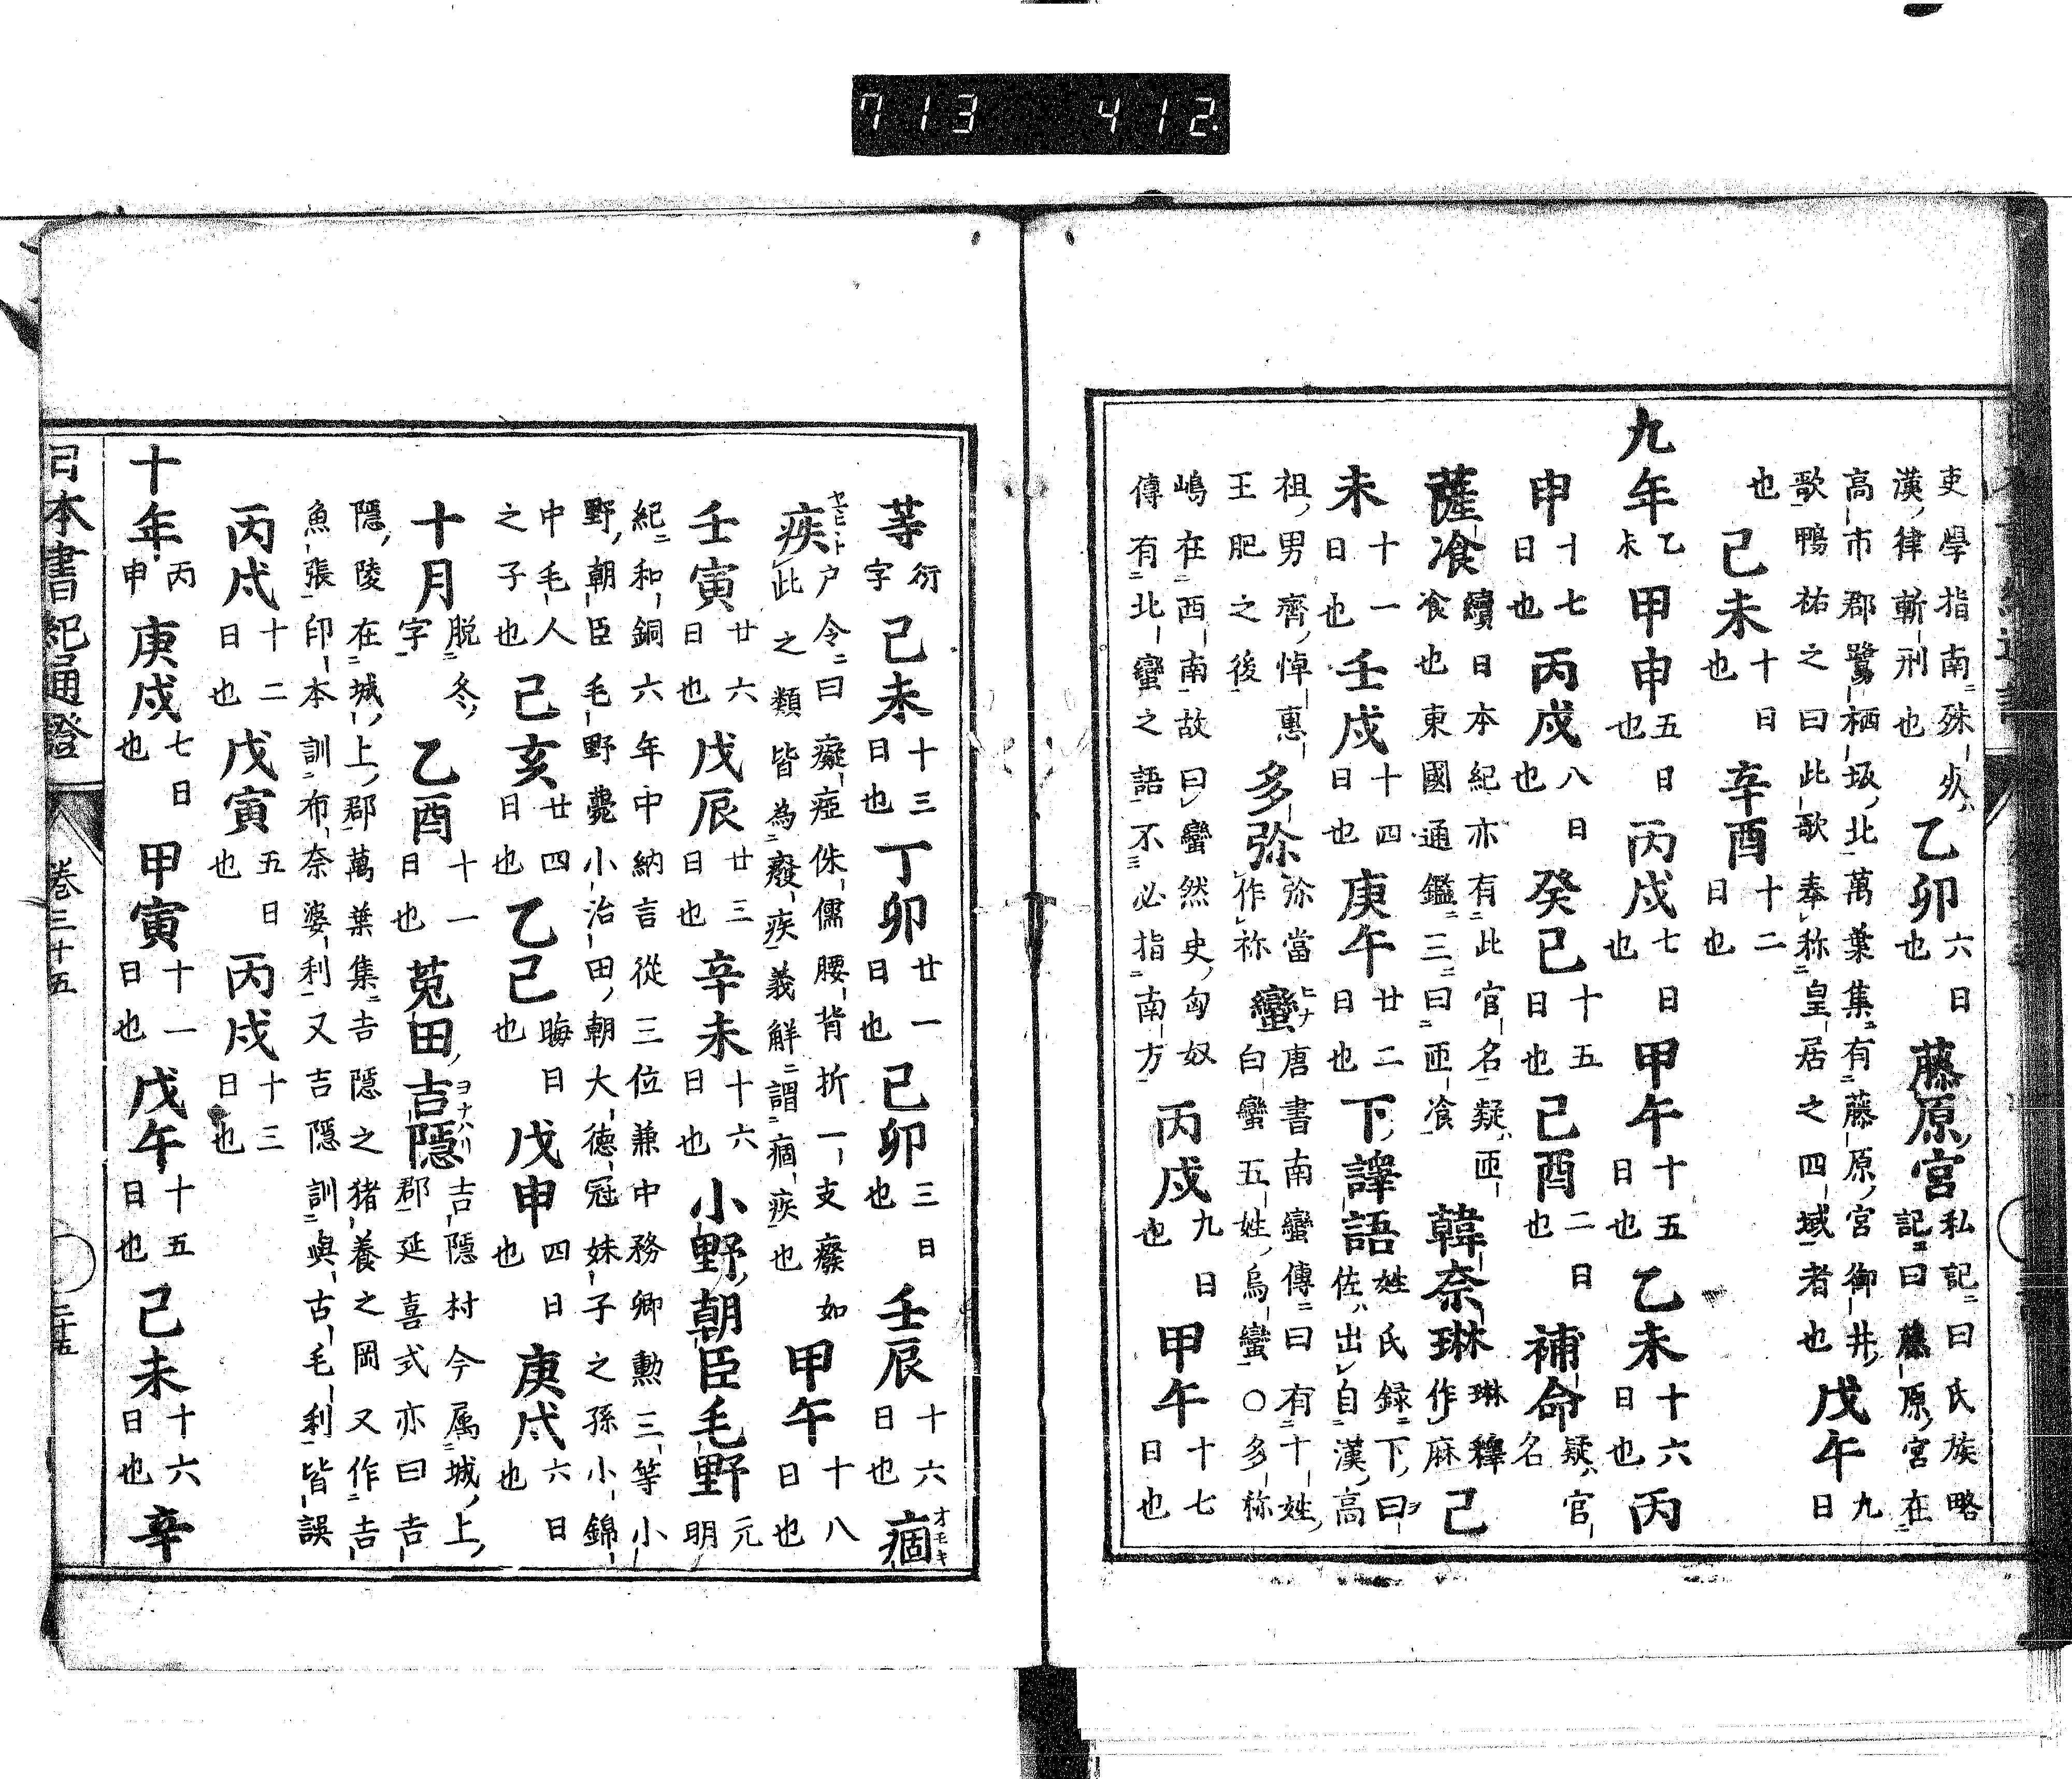 吏學指南殊死漢律斬刑也乙卯六日也藤原宮私記曰氏族略記曰藤原宮在
高市郡鷺栖坂北萬葉集有藤原宮御井歌鴨祐之曰此歌奉称皇居之四域者也戊午九日
也己未十日也辛酉十二日也
九年乙未甲申五日也丙戌七日也甲午十五日也乙未十六日也丙
申十七日也丙戌八日也癸巳十五日也己酉二日也補命疑官名
薩飡續日本紀亦有此官名疑匝飡也東國通鑑三曰匝飡韓奈琳琳釋作麻己
未十一日也壬戌十四日也庚午廿二日也下譯語姓氏録下曰佐出自漢高
祖男齊悼惠王肥之後多弥弥當作祢蠻ヒナ唐書南蠻傳曰有十姓白蠻五姓烏蠻○多祢
嶋在西南故曰蠻然史匈奴傳有北蠻之語不必指南方丙戌九日也甲午十七日也
等衍字己未十三日也丁卯廿一日也己卯三日也壬辰十六日也痼オモキ
疾ヤヒト戸令曰癡瘂侏儒腰背折一支癈如此之類皆為癈疾義解謂痼疾也甲午十八日也
壬寅廿六日也戊辰廿三日也辛未十六日也小野朝臣毛野元明
紀和銅六年中納言從三位兼中務卿勲三等小野朝臣毛野薨小治田朝大德冠妹子之孫小錦
中毛人之子也己亥廿四日也乙巳晦日也戊申四日也庚戌六日也
十月脱冬字乙酉十一日也菟田吉隱ヨナハリ吉隱村今属城上郡延喜式亦曰吉
隱陵在城上郡萬葉集吉隱之猪養之岡又作吉魚張印本訓布奈婆利又吉隱訓與古毛利皆誤
丙戌十二日也戊寅五日也丙戌十三日也
十年丙申庚戌七日也甲寅十一日也戊午十五日也己未十六日也辛
日本書紀通證 卷三十五
713 412.